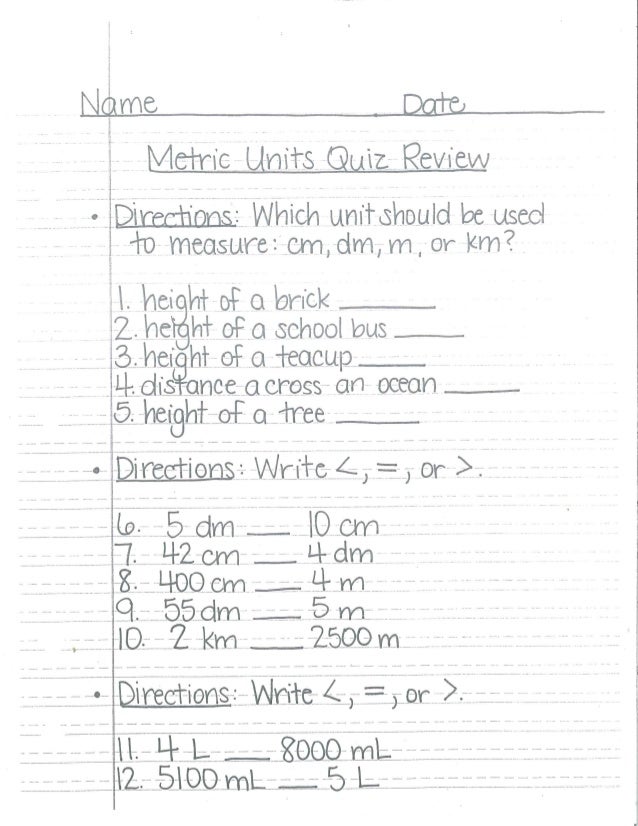 Name Date
Metric Units Quiz Review
• Directions: Which unit should be used
to measure: cm, dm, m, or km?
1. height of a brick ____
2. height of a school bus ____
3. height of a teacup ____
4. distance across an ocean ____
5. height of a tree ____
• Directions: Write <, =, or >.
6. 5 dm ____ 10 cm
7. 42 cm ____ 4 dm
8. 400 cm ____ 4 m
9. 55 dm ____ 5 m
10. 2 km ____ 2500 m
• Directions: Write <, =, or >.
11. 4 L ____ 8000 mL
12. 5100 mL ____ 5 L